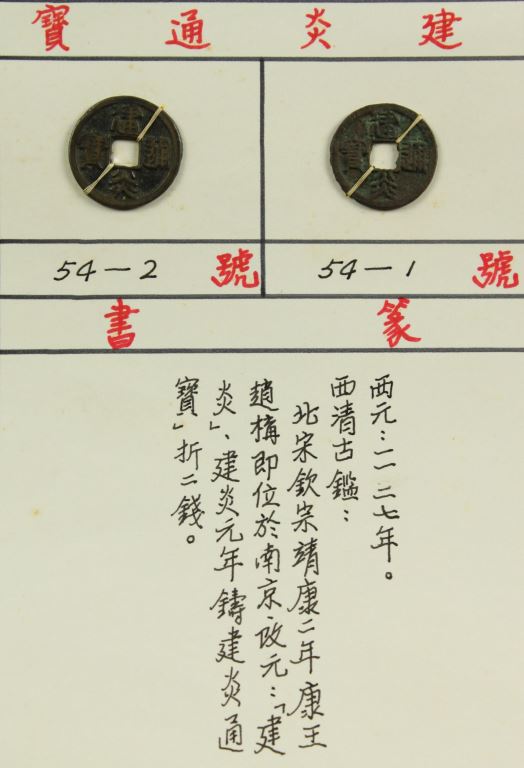 建炎通寶
建炎通寶
建炎通寶
號 54-1
號 54-2
篆書
西元：一一二七年。
西清古鑑：
北宋欽宗靖康二年康王
趙構即位於南京，改元：「建
炎」、建炎元年鑄建炎通
寶」折二錢。